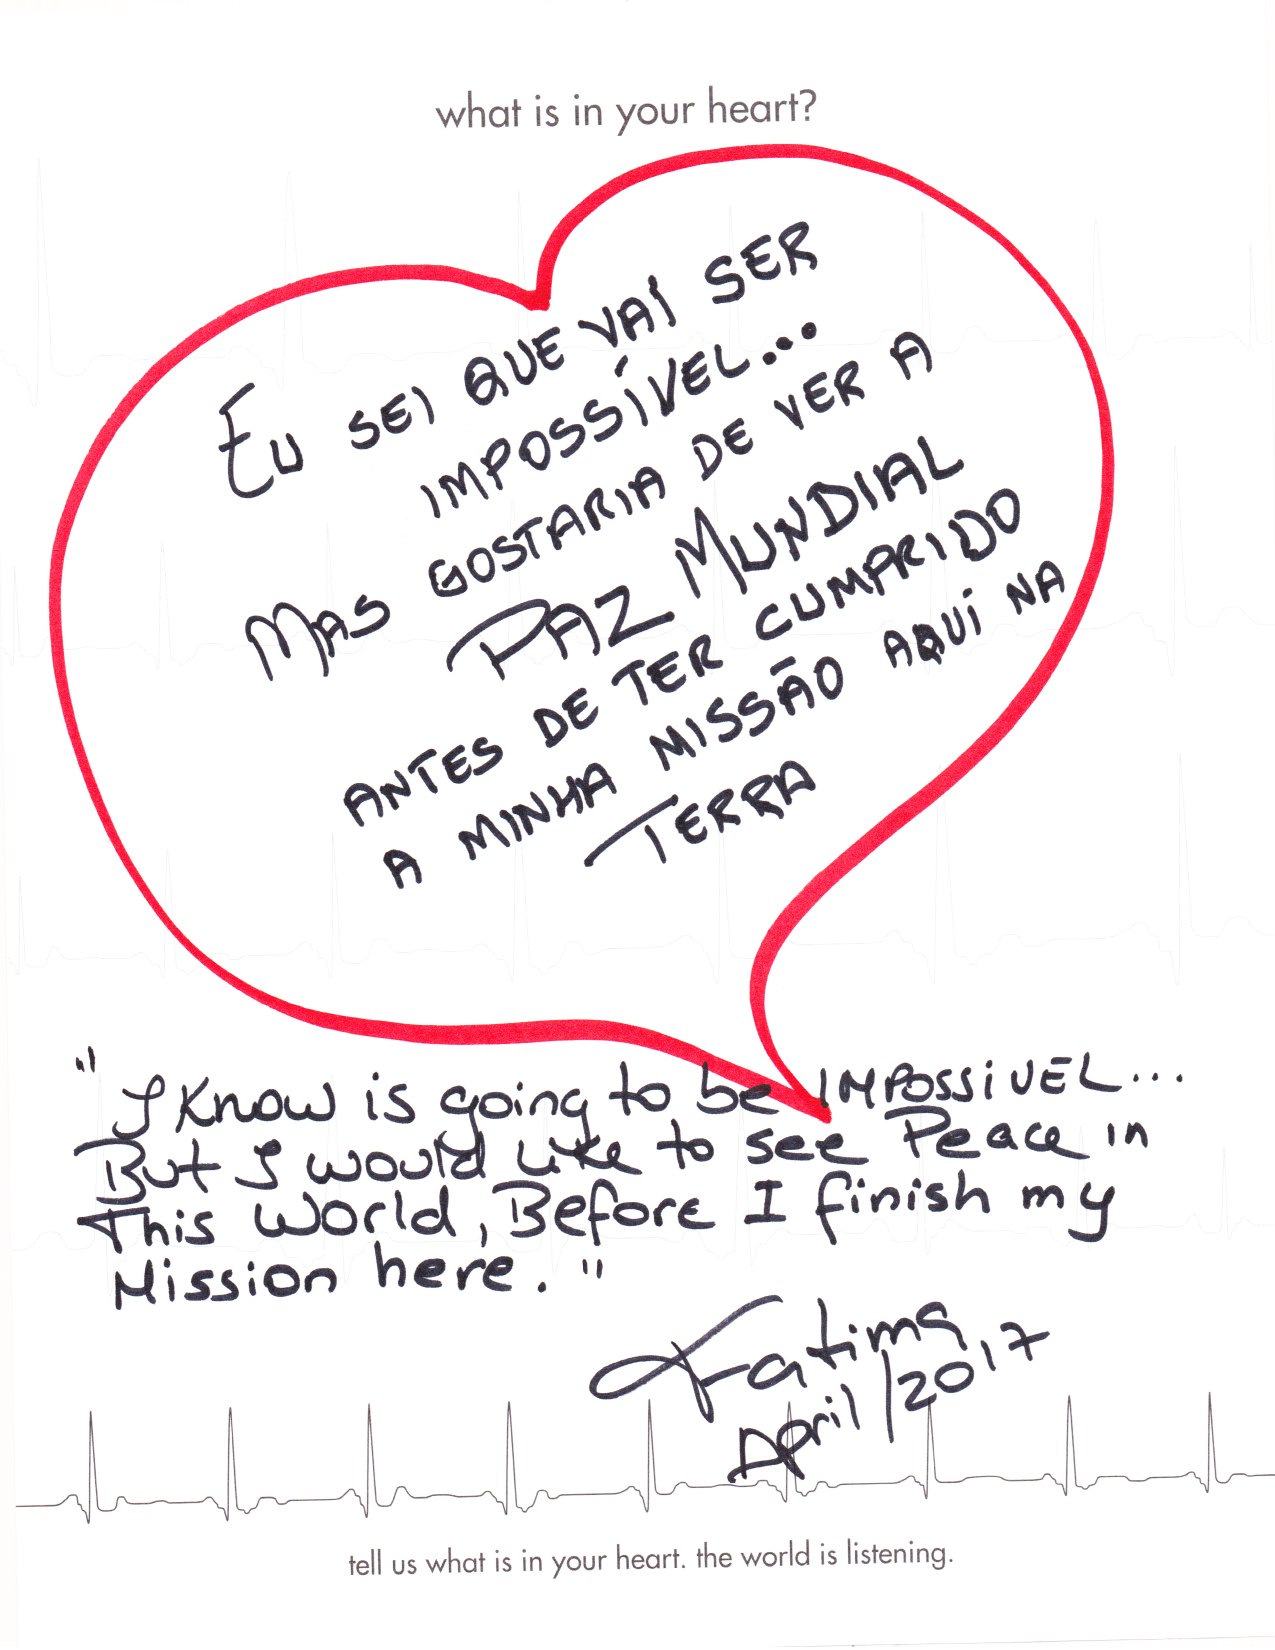 what is in your heart?
EU SEI QUE VAI SER
IMPOSSÍVEL...
MAS GOSTARIA DE VER A
PAZ MUNDIAL
ANTES DE TER CUMPRIDO
A MINHA MISSÃO AQUI NA
TERRA
"I Know is going to be IMPOSSIVEL...
But I would like to see Peace in
This World, Before I finish my
Mission here."
Fatima
April/2017
tell us what is in your heart. the world is listening.